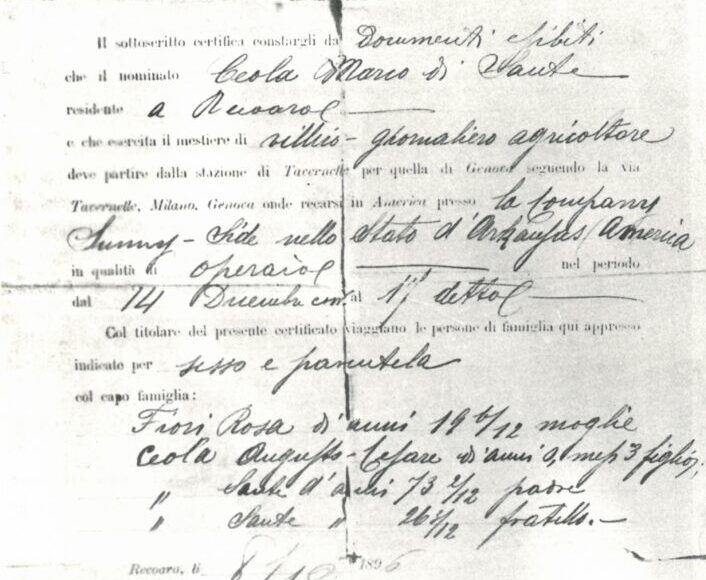 Il sottoscritto certifica constargli da Documenti esibiti
che il nominato Ceola Marco di Sante
residente a Recoaro
e che esercita il mestiere di villico - giornaliero agricoltore
deve partire dalla stazione di Tavernelle per quella di Genova seguendo la via
Tavernelle, Milano, Genova onde recarsi in America presso la Company
Sunny-Side nello Stato d'Arkansas (America
in qualità di operaio nel periodo
dal 14 Dicembre corr. al 17 detto
Col titolare del presente certificato viaggiano le persone di famiglia qui appresso
indicate per sesso e parentela
col capo famiglia:
Fiori Rosa d'anni 19 6/12 moglie
Ceola Augusto-Cesare d'anni 0, mesi 3 figlio;
" Sante d'anni 73 2/12 padre
" Sante " 26 fratello.-
Recoaro, li 1896